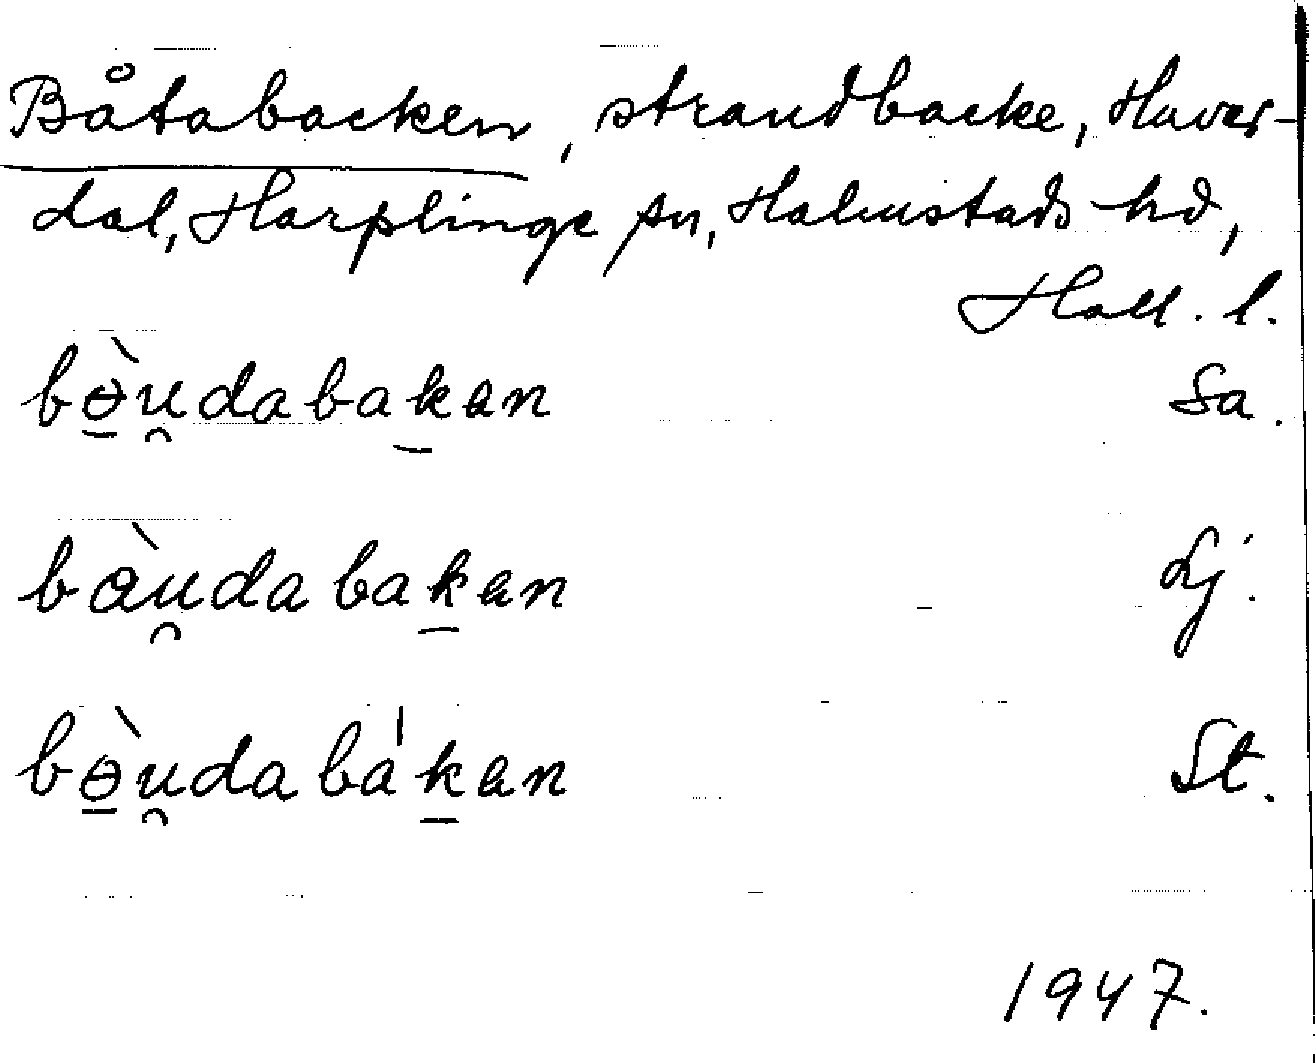 Båtabacken, strandbacke, Haver-
dal, Harplinge sn, Halmstads hd,
Hall. l.
bɵ̱̀u̯dabaḵan Sa.
bàu̯dabaḵan Lj.
bɵ̱̀u̯dabàḵan St.
1947.